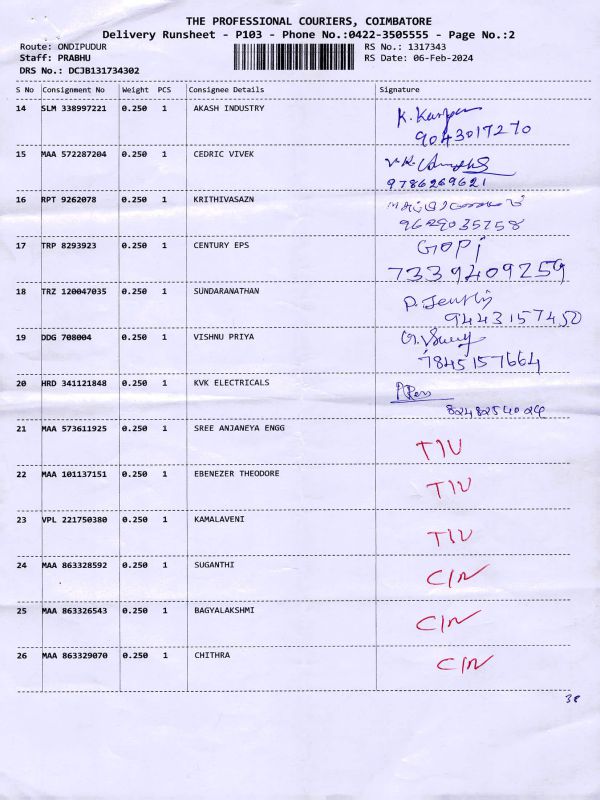 THE PROFESSIONAL COURIERS, COIMBATORE
Delivery Runsheet - P103 - Phone No.:0422-3505555 - Page No.:2
Route: ONDIPUDUR RS No.: 1317343
Staff: PRABHU RS Date: 06-Feb-2024
DRS No.: DCJB131734302
S No Consignment No Weight PCS Consignee Details Signature
14 SLM 338997221 0.250 1 AKASH INDUSTRY
9043017270
15 MAA 572287204 0.250 1 CEDRIC VIVEK
9786269621
16 RPT 9262078 0.250 1 KRITHIVASAZN
9629035258
17 TRP 8293923 0.250 1 CENTURY EPS GOPI
7339409259
18 TRZ 120047035 0.250 1 SUNDARANATHAN
9443157450
19 DDG 708004 0.250 1 VISHNU PRIYA
7845157664
20 HRD 341121848 0.250 1 KVK ELECTRICALS
8248254024
21 MAA 573611925 0.250 1 SREE ANJANEYA ENGG TIU
22 MAA 101137151 0.250 1 EBENEZER THEODORE TIU
23 VPL 221750380 0.250 1 KAMALAVENI TIU
24 MAA 863328592 0.250 1 SUGANTHI C/N
25 MAA 863326543 0.250 1 BAGYALAKSHMI C/N
26 MAA 863329070 0.250 1 CHITHRA C/N
38